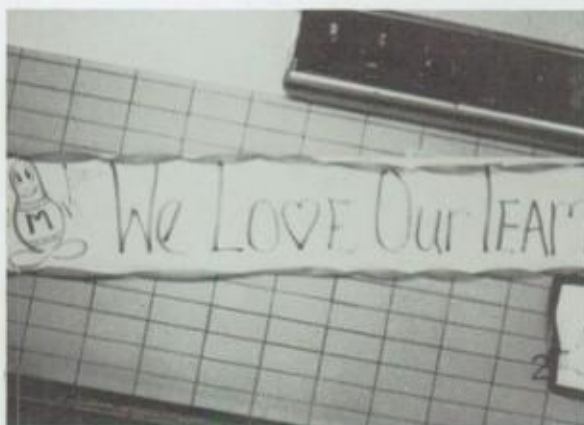 M
We LO♡E Our TEAM
2